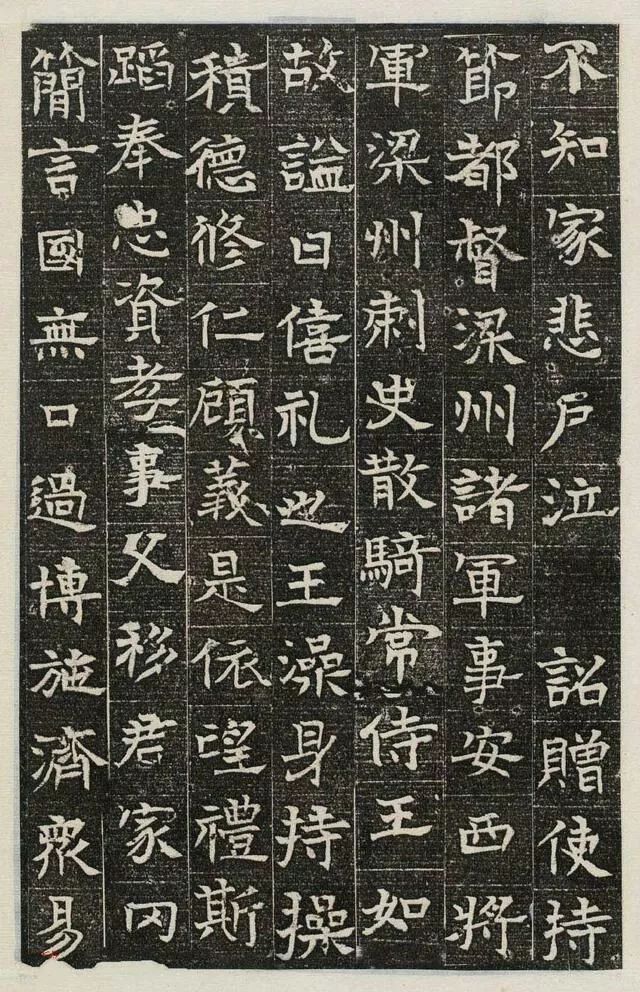 不知家悲戶泣　詔贈使持
節都督梁州諸軍事安西將
軍梁州刺史散騎常侍王如
故謚曰僖礼也王澡身持操
積德修仁顧義是依望禮斯
蹈奉忠資孝事父移君家冈
簡言國無口過博施濟眾易